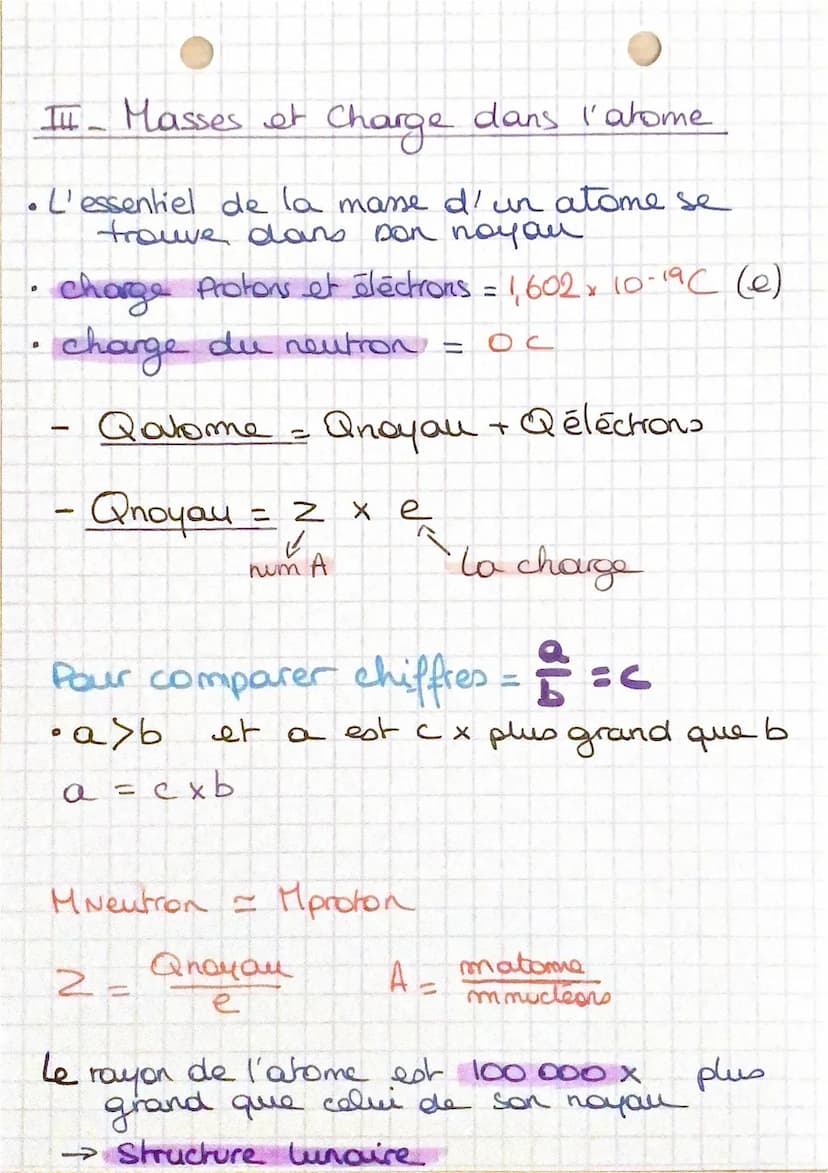 III - Masses et Charge dans l'atome
• L'essentiel de la masse d'un atome se
trouve dans son noyau
• charge Protons et éléctrons = 1,602 x 10-19C (e)
• charge du neutron = 0 C
- Qatome = Qnoyau + Qéléctrons
- Qnoyau = Z x e
num A la charge
Pour comparer chiffres = a/b = c
• a>b et a est c x plus grand que b
a = c x b
MNeutron ≃ Mproton
Z = Qnoyau/e A = matome/mnucléons
Le rayon de l'atome est 100 000 x plus
grand que celui de son noyau
→ Structure lunaire